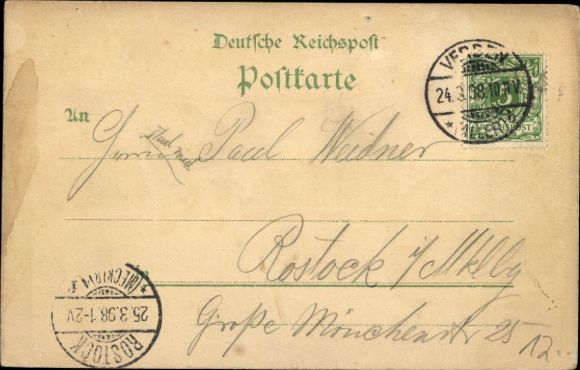 Deutsche Reichspost
Postkarte
VERDEN
24.3.98.10-11V
*(ALLER)
5
An
Herrn Stud. med. Paul Weidner
Rostock i/Mklbg
Große Mönchenstr 25
12.-
ROSTOCK
25.3.98.1-2V
*(MECKLB)1